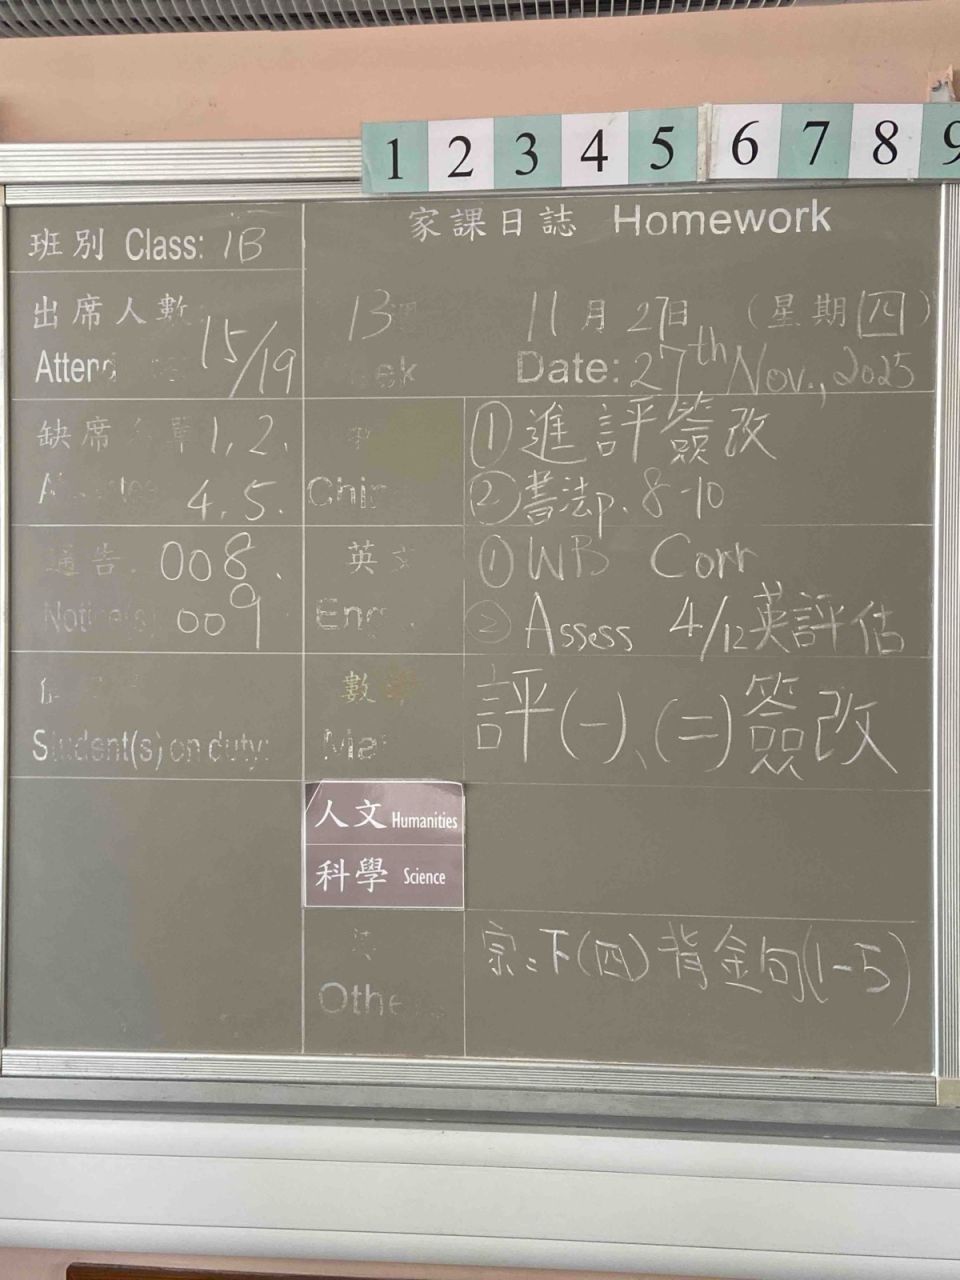 1 2 3 4 5 6 7 8 9
班別 Class: 1B
家課日誌 Homework
出席人數 15/19
Attend
13週
eek
11月27日 (星期四)
Date: 27th Nov., 2025
缺席 單 1, 2,
4, 5.
Chin
①進評簽改
②書法p. 8-10
通告 008,
Notice(s) 009
英文
Eng
①WB Corr
②Assess 4/12英評估
Student(s) on duty:
數學
Ma
評(一)、(二)簽改
人文 Humanities
科學 Science
其
Othe
宗:下(四)背金句(1-5)